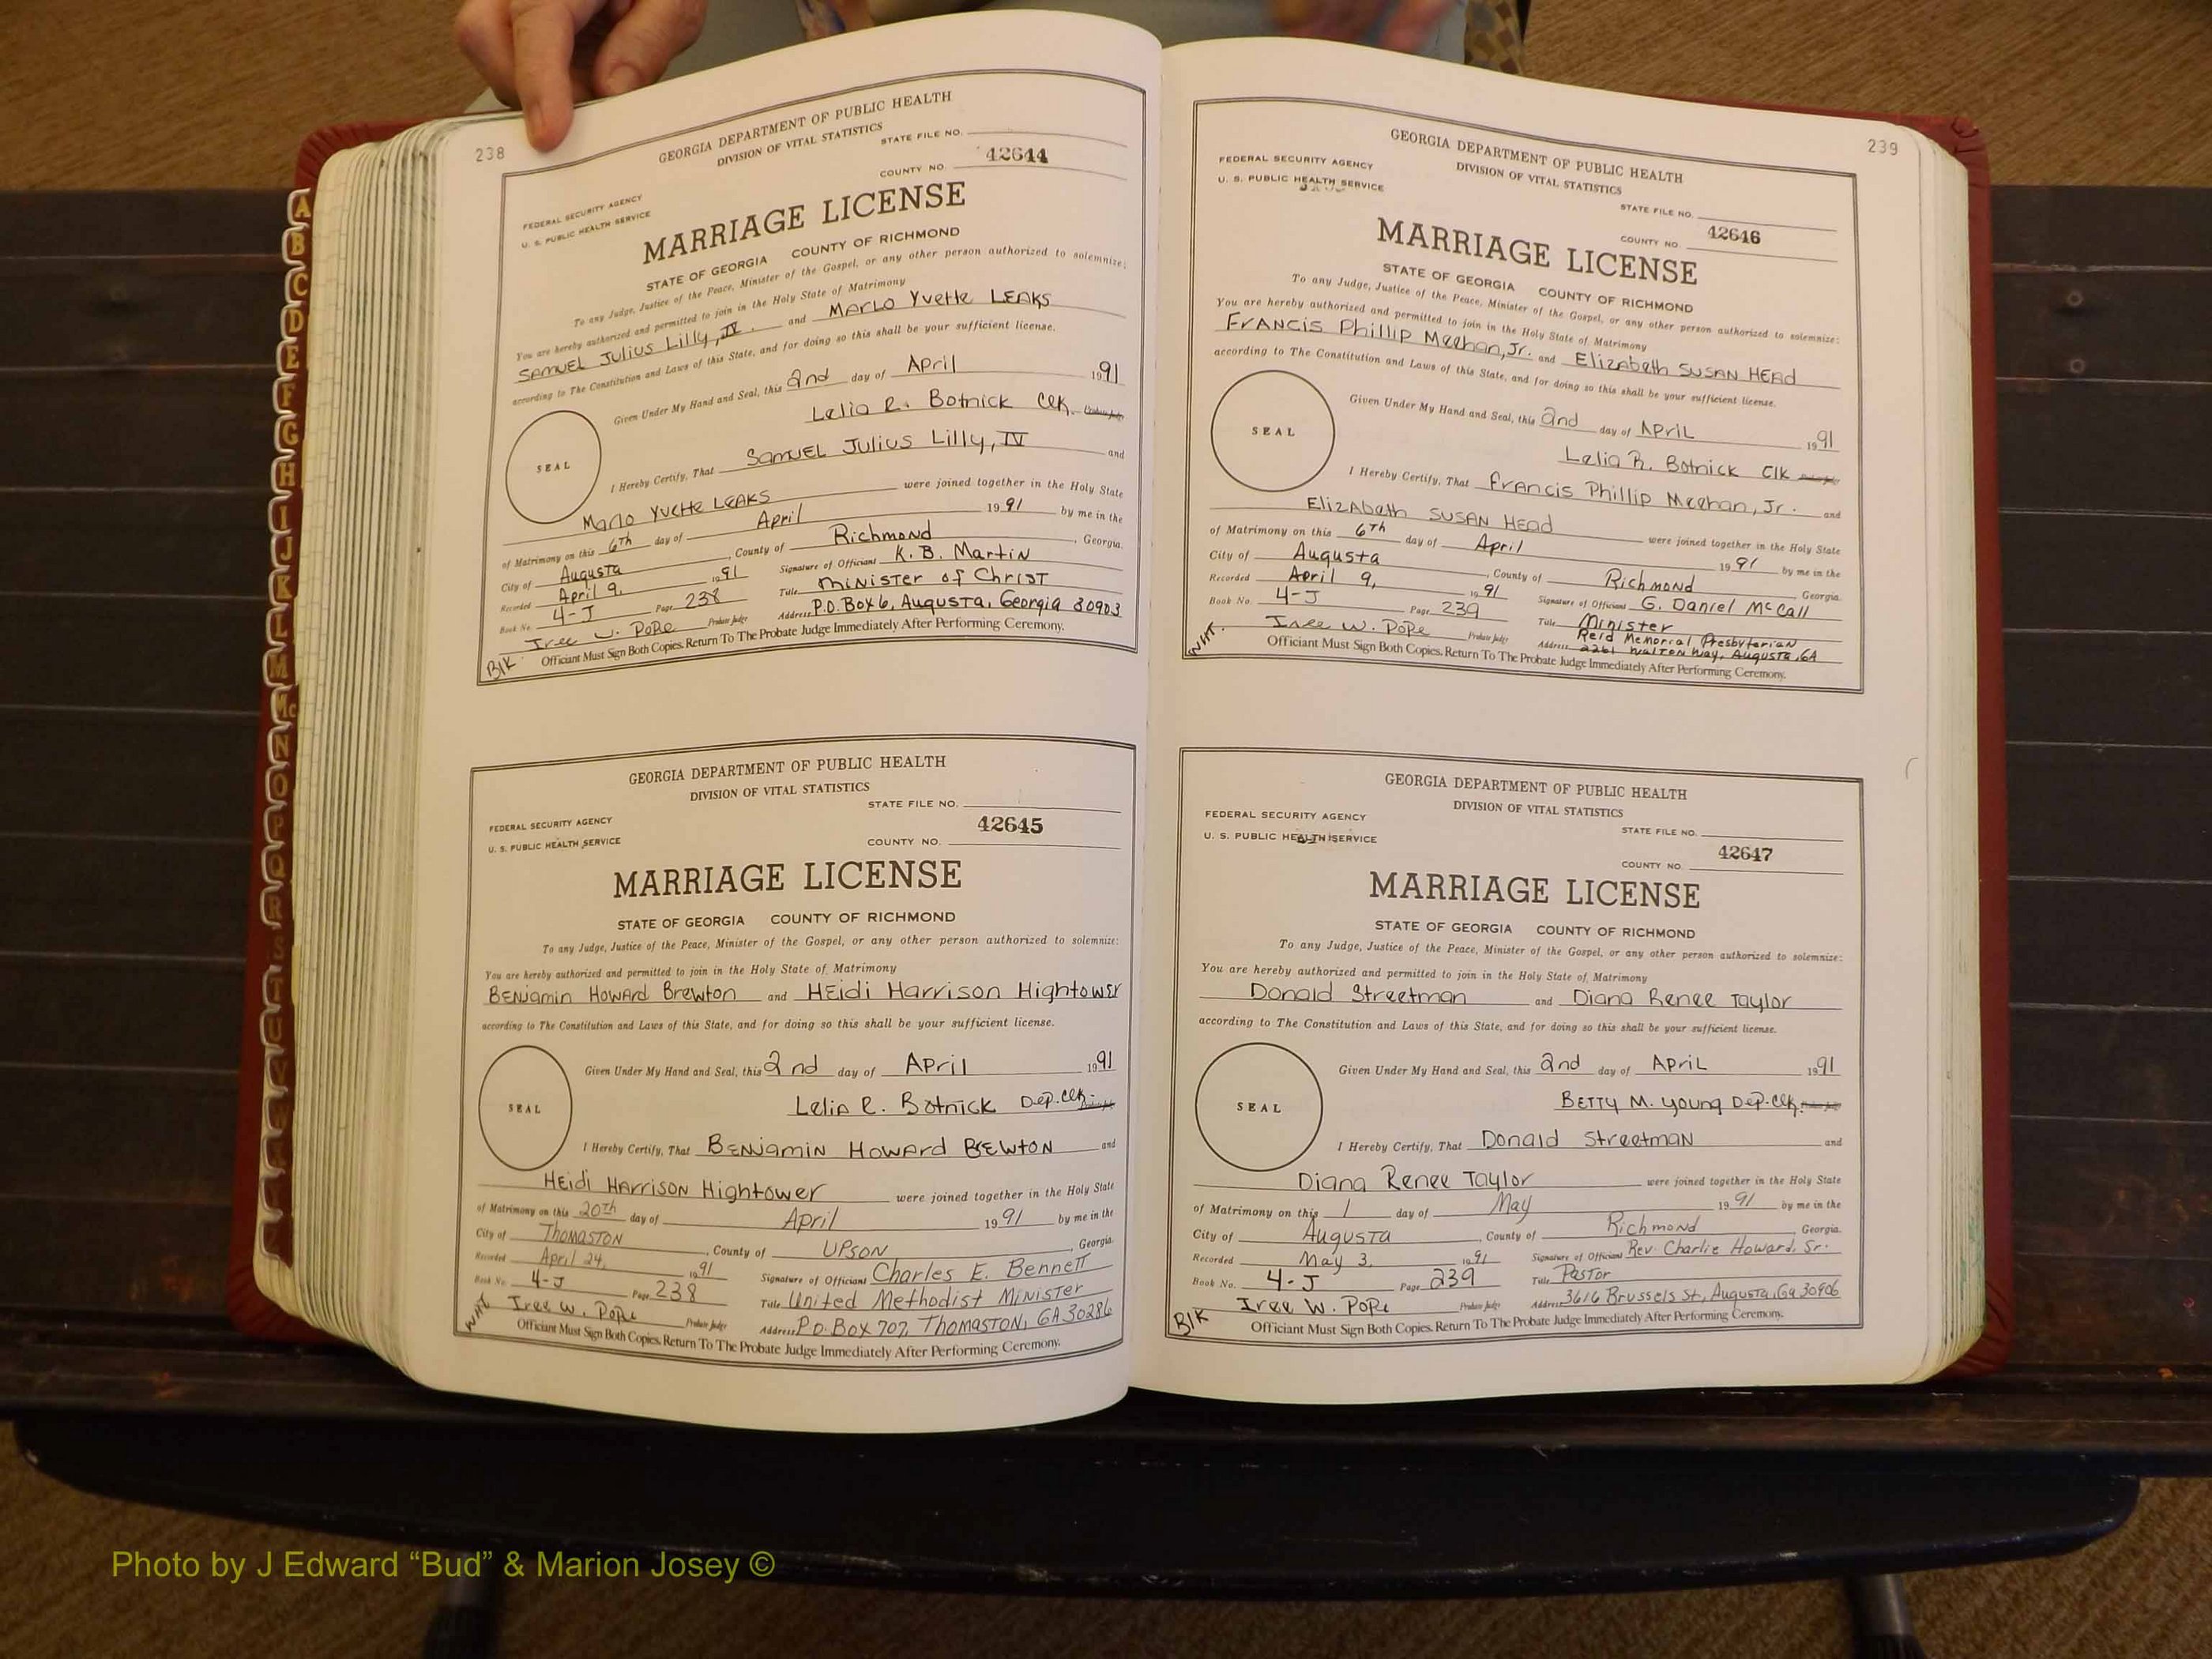 238
GEORGIA DEPARTMENT OF PUBLIC HEALTH
DIVISION OF VITAL STATISTICS
STATE FILE NO.
42644
COUNTY NO.
FEDERAL SECURITY AGENCY
U. S. PUBLIC HEALTH SERVICE
MARRIAGE LICENSE
STATE OF GEORGIA COUNTY OF RICHMOND
To any Judge, Justice of the Peace, Minister of the Gospel, or any other person authorized to solemnize:
You are hereby authorized and permitted to join in the Holy State of Matrimony
SAMUEL Julius Lilly, IV. and MARLO YveHe LEAKS
according to The Constitution and Laws of this State, and for doing so this shall be your sufficient license.
Given Under My Hand and Seal, this 2nd day of April 1991
Lelia R. Botnick Clk. Probate Judge
SEAL
I Hereby Certify, That SamUEL Julius Lilly, IV and
Marlo YvetTe LEAKS were joined together in the Holy State
of Matrimony on this 6Th day of April 1991 by me in the
City of Augusta, County of Richmond, Georgia.
Recorded April 9, 1991 Signature of Officiant K. B. Martin
Book No. 4-J Page 238 Title Minister of Christ
Iree W. Pope Probate Judge Address P.O. Box 6, Augusta, Georgia 30903
Blk Officiant Must Sign Both Copies. Return To The Probate Judge Immediately After Performing Ceremony.
GEORGIA DEPARTMENT OF PUBLIC HEALTH
DIVISION OF VITAL STATISTICS
STATE FILE NO.
42645
FEDERAL SECURITY AGENCY
U. S. PUBLIC HEALTH SERVICE
COUNTY NO.
MARRIAGE LICENSE
STATE OF GEORGIA COUNTY OF RICHMOND
To any Judge, Justice of the Peace, Minister of the Gospel, or any other person authorized to solemnize:
You are hereby authorized and permitted to join in the Holy State of Matrimony
BENjamin HowARd Brewton and HEidi Harrison Hightower
according to The Constitution and Laws of this State, and for doing so this shall be your sufficient license.
Given Under My Hand and Seal, this 2nd day of April 1991
Lelia R. Botnick Dep. Clk. Probate Judge
SEAL
I Hereby Certify, That BENjamin Howard BREWtON and
HEidi HArrison Hightower were joined together in the Holy State
of Matrimony on this 20Th day of April 1991 by me in the
City of Thomaston, County of UPSON, Georgia.
Recorded April 24, 1991 Signature of Officiant Charles E. Bennett
Book No. 4-J Page 238 Title United Methodist Minister
Iree W. Pope Probate Judge Address P.O. Box 707, Thomaston, GA 30286
Wht Officiant Must Sign Both Copies. Return To The Probate Judge Immediately After Performing Ceremony.
239
GEORGIA DEPARTMENT OF PUBLIC HEALTH
DIVISION OF VITAL STATISTICS
FEDERAL SECURITY AGENCY
U. S. PUBLIC HEALTH SERVICE
STATE FILE NO.
42646
COUNTY NO.
MARRIAGE LICENSE
STATE OF GEORGIA COUNTY OF RICHMOND
To any Judge, Justice of the Peace, Minister of the Gospel, or any other person authorized to solemnize:
You are hereby authorized and permitted to join in the Holy State of Matrimony
FrANCis Phillip Meehan, Jr. and Elizabeth SUSAN HEAd
according to The Constitution and Laws of this State, and for doing so this shall be your sufficient license.
Given Under My Hand and Seal, this 2nd day of April 1991
Lelia R. Botnick Clk Probate Judge
SEAL
I Hereby Certify, That Francis Phillip Meehan, Jr. and
ElizAbeth SUSAN HEad were joined together in the Holy State
of Matrimony on this 6Th day of April 1991 by me in the
City of Augusta, County of Richmond Georgia.
Recorded April 9, 1991 Signature of Officiant G. Daniel McCall
Book No. 4-J Page 239 Title Minister
Reid Memorial Presbyterian
Iree W. Pope Probate Judge Address 2261 Walton Way, Augusta, GA
Wht. Officiant Must Sign Both Copies. Return To The Probate Judge Immediately After Performing Ceremony.
GEORGIA DEPARTMENT OF PUBLIC HEALTH
DIVISION OF VITAL STATISTICS
FEDERAL SECURITY AGENCY
U. S. PUBLIC HEALTH SERVICE
STATE FILE NO.
42647
COUNTY NO.
MARRIAGE LICENSE
STATE OF GEORGIA COUNTY OF RICHMOND
To any Judge, Justice of the Peace, Minister of the Gospel, or any other person authorized to solemnize:
You are hereby authorized and permitted to join in the Holy State of Matrimony
Donald Streetman and Diana Renee Taylor
according to The Constitution and Laws of this State, and for doing so this shall be your sufficient license.
Given Under My Hand and Seal, this 2nd day of April 1991
Betty M. Young Dep. Clk. Probate Judge
SEAL
I Hereby Certify, That Donald Streetman and
Diana Renee Taylor were joined together in the Holy State
of Matrimony on this 1 day of May 1991 by me in the
City of Augusta, County of Richmond, Georgia.
Recorded May 3, 1991 Signature of Officiant Rev. Charlie Howard, Sr.
Book No. 4-J Page 239 Title Pastor
Iree W. Pope Probate Judge Address 3616 Brussels St, Augusta, Ga 30906
Blk Officiant Must Sign Both Copies. Return To The Probate Judge Immediately After Performing Ceremony.
A
B
C
D
E
F
G
H
I
J
K
L
M
Mc
N
O
P
Q
R
S
T
U
V
W
Photo by J Edward “Bud” & Marion Josey ©